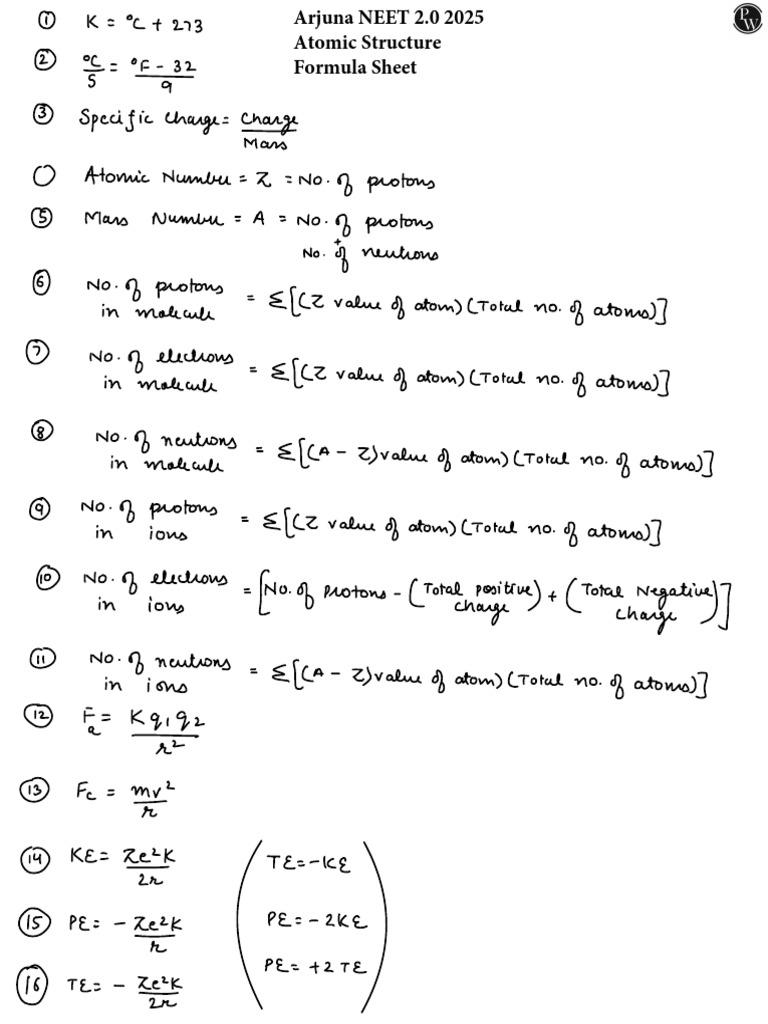 Arjuna NEET 2.0 2025
Atomic Structure
Formula Sheet
PW
① K = °C + 273
② °C/5 = °F - 32/9
③ Specific Charge = Charge/Mass
○ Atomic Number = Z = No. of protons
⑤ Mass Number = A = No. of protons
+
No. of neutrons
⑥ No. of protons in molecule = Σ[(Z value of atom)(Total no. of atoms)]
⑦ No. of electrons in molecule = Σ[(Z value of atom)(Total no. of atoms)]
⑧ No. of neutrons in molecule = Σ[(A - Z) value of atom)(Total no. of atoms)]
⑨ No. of protons in ions = Σ[(Z value of atom)(Total no. of atoms)]
⑩ No. of electrons in ions = [No. of protons - (Total positive charge) + (Total Negative charge)]
⑪ No. of neutrons in ions = Σ[(A - Z) value of atom)(Total no. of atoms)]
⑫ Fₐ = Kq₁q₂/r²
⑬ Fc = mv²/r
⑭ KE = Ze²K/2r
TE = -KE
⑮ PE = - Ze²K/r
PE = -2KE
PE = +2TE
⑯ TE = - Ze²K/2r